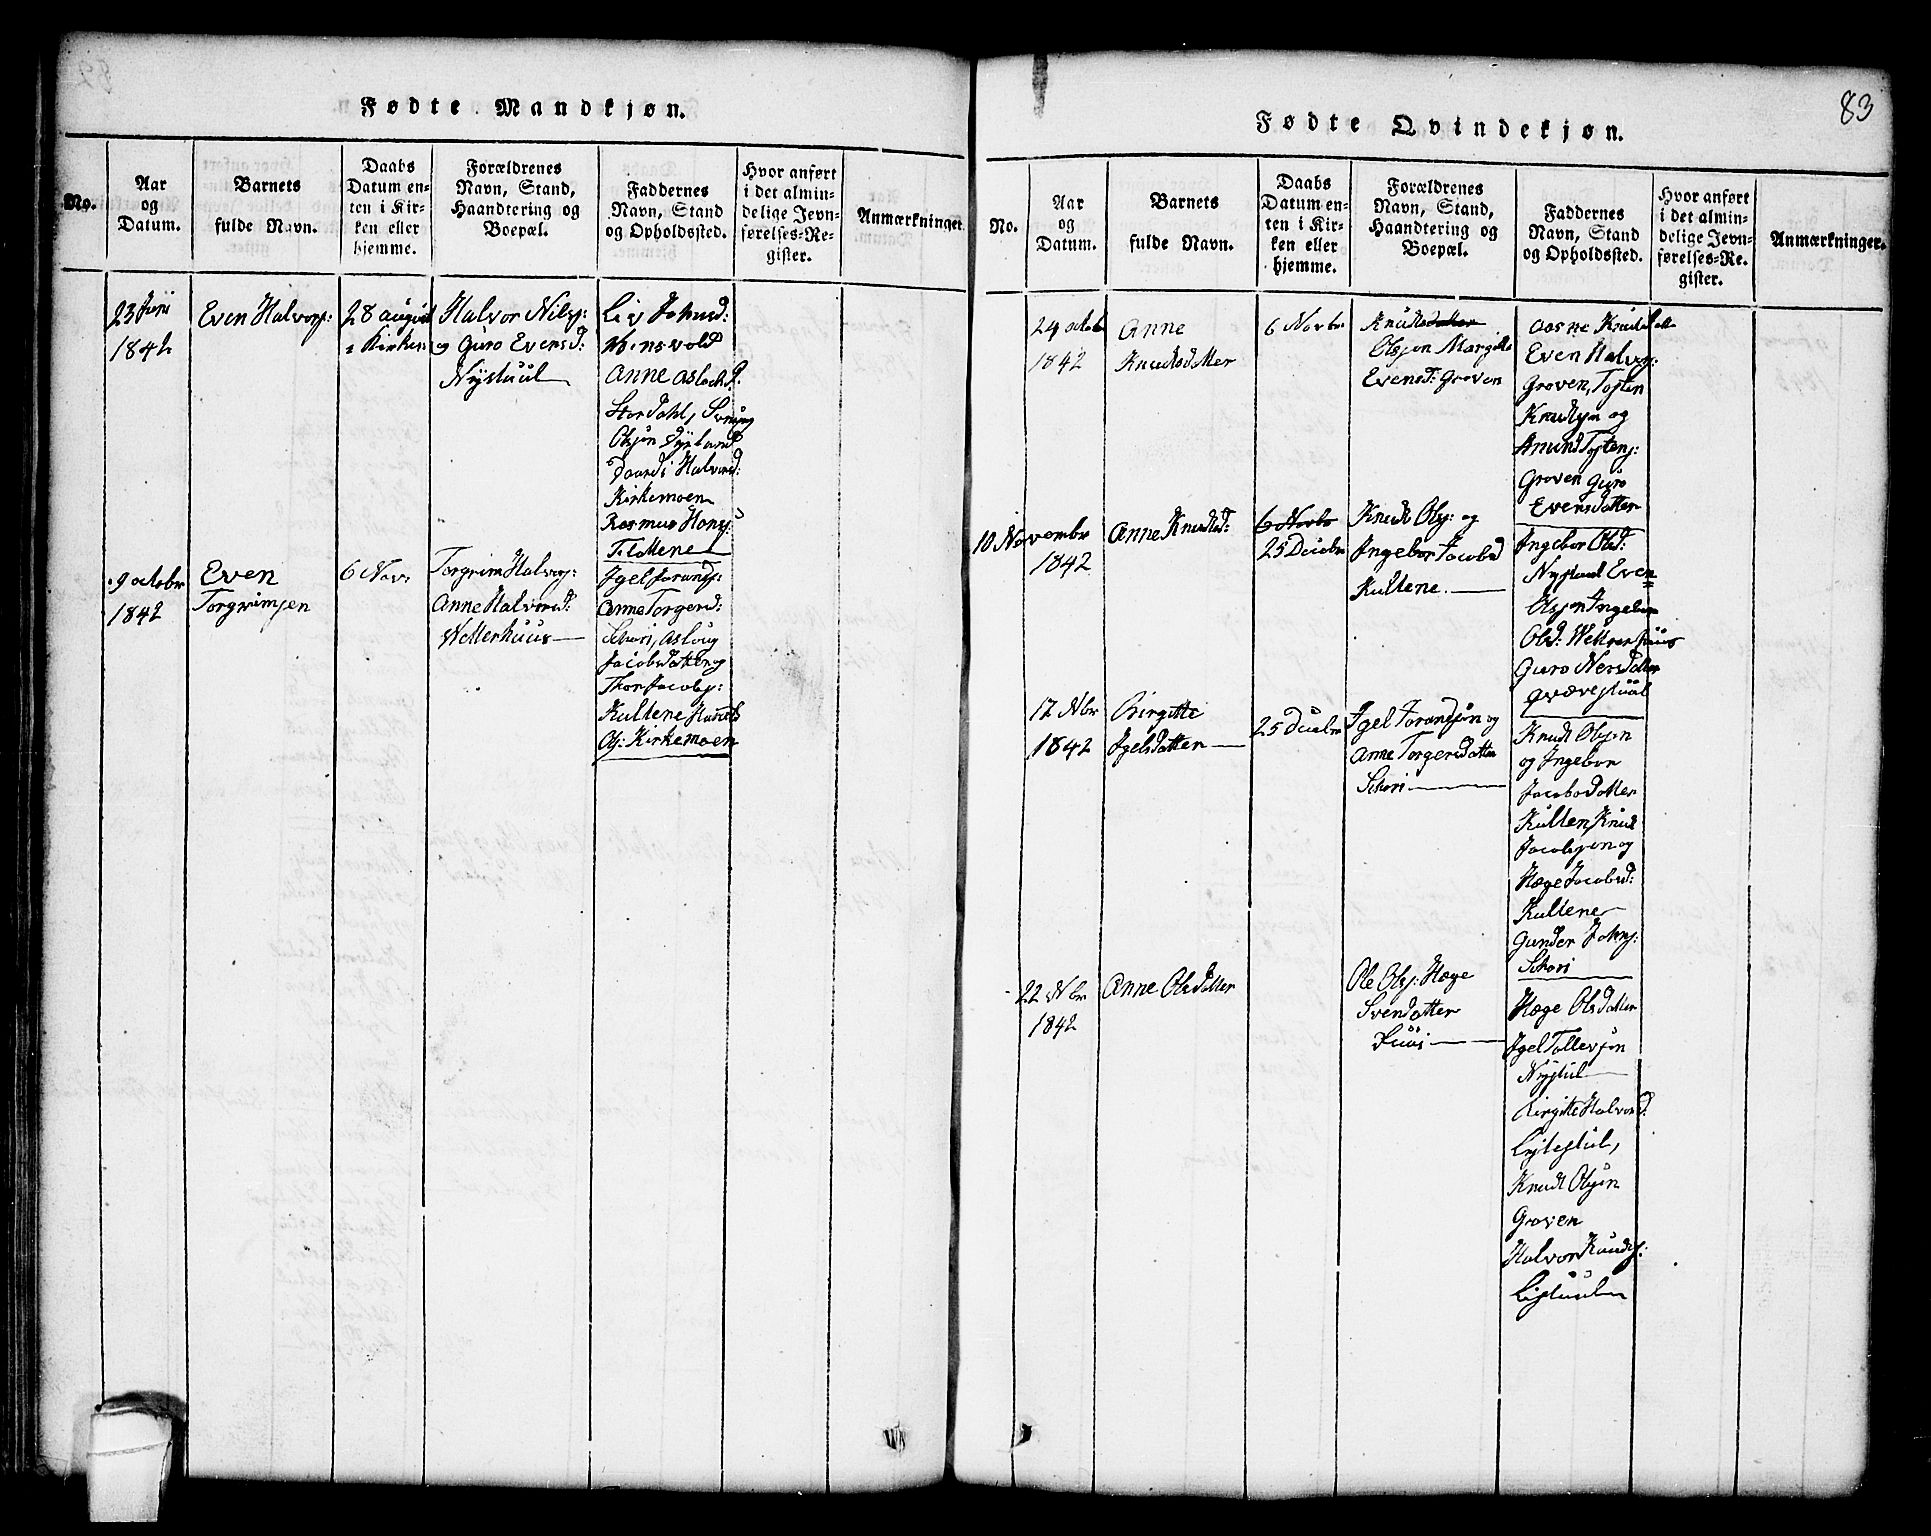 Fødte Mandkjøn.
No.
Aar
og
Datum.
Barnets
fulde Navn.
Daabs
Datum en-
ten i Kir-
ken eller
hjemme.
Forældrenes
Navn, Stand,
Haandtering og
Boepæl.
Faddernes
Navn, Stand
og Opholdssted.
Hvor anført
i det almin-
delige Jevn-
førelses-Re-
gister.
Anmærkninger.
23 Juni
1842
Even Halvors:
28 august
i Kirken
Halvor Nils:
og Guro Evensd:
Nystuul
Liv Johnsd:
Anne Aslachd:
Stordahl,
Olsøn Dyrland
Halvorsd:
Kirkemoen
Rasmus Hans:
9 octobr
1842
Even
Torgrimsen
6 Novr
Torgrim Halvors:
Anne Halvorsd:
Wetterhuus
Igel Forands:
Anne Torgersd:
Schori, Aslaug
Jacobsdatter og
Thor Jacobs:
Kultene
Ols: Kirkemoen
83
Fødte Qvindekjøn.
No.
Aar
og
Datum.
Barnets
fulde Navn.
Daabs
Datum en-
ten i Kir-
ken eller
hjemme.
Forældrenes
Navn, Stand,
Haandtering og
Boepæl.
Faddernes
Navn, Stand
og Opholdssted.
Hvor anført
i det almin-
delige Jevn-
førelses-Re-
gister.
Anmærkninger.
24 octob
1842
Anne
Knudsdatter
6 Novbr
Knudsdatter
Olsøn Margitte
Evensd: Groven
Aasne Knudsdatt
Even Halvors:
Groven, Tosten
Knudsøn og
Amund Tostens:
Groven Guro
Evensdatter
10 Novembr
1842
Anne Knudsd:
6 Novbr
25 Decebr
Knudt Ols: og
Ingebor Jacobsd
Kultene.
Ingebor Olsd:
Nystuul Even
Olsøn Ingebor
Olsd: Wetterhuus
Guro Nersdatter
17 Nbr
1842
Birgitte
Igelsdatter
25 Decebr
Igel Forandsøn og
Anne Torgersdatter
Schori
Knudt Olsøn
og Ingebor
Jacobsdatter
Kulten, Knud
Jacobsøn og
Hæge Jacobsd:
Kultene
Gunder Johns:
Schori
22 Nbr
1842
Anne Olsdatter
Ole Ols: Hæge
Svensdatter
Hæge Olsdatter
Igel Tollevsøn
Nystul
Birgitte Halvorsd:
Knudt Olsøn
Groven
Halvor Knuds: